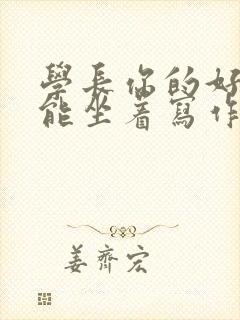 學長你的好
能坐着寫作
姜齊宏